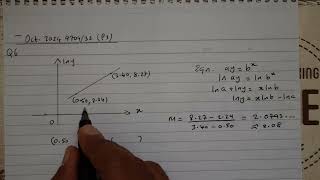 - Oct. 2024 9709/32 (P3)
Q6
ln y
(3.40, 8.27)
(0.50, 2.24)
0
x
Eqn. ay = b^x
ln ay = ln b^x
ln a + ln y = x ln b
ln y = x ln b - ln a
M = 8.27 - 2.24 / 3.40 - 0.50 = 2.0793...
≈ 2.08
(0.50 )